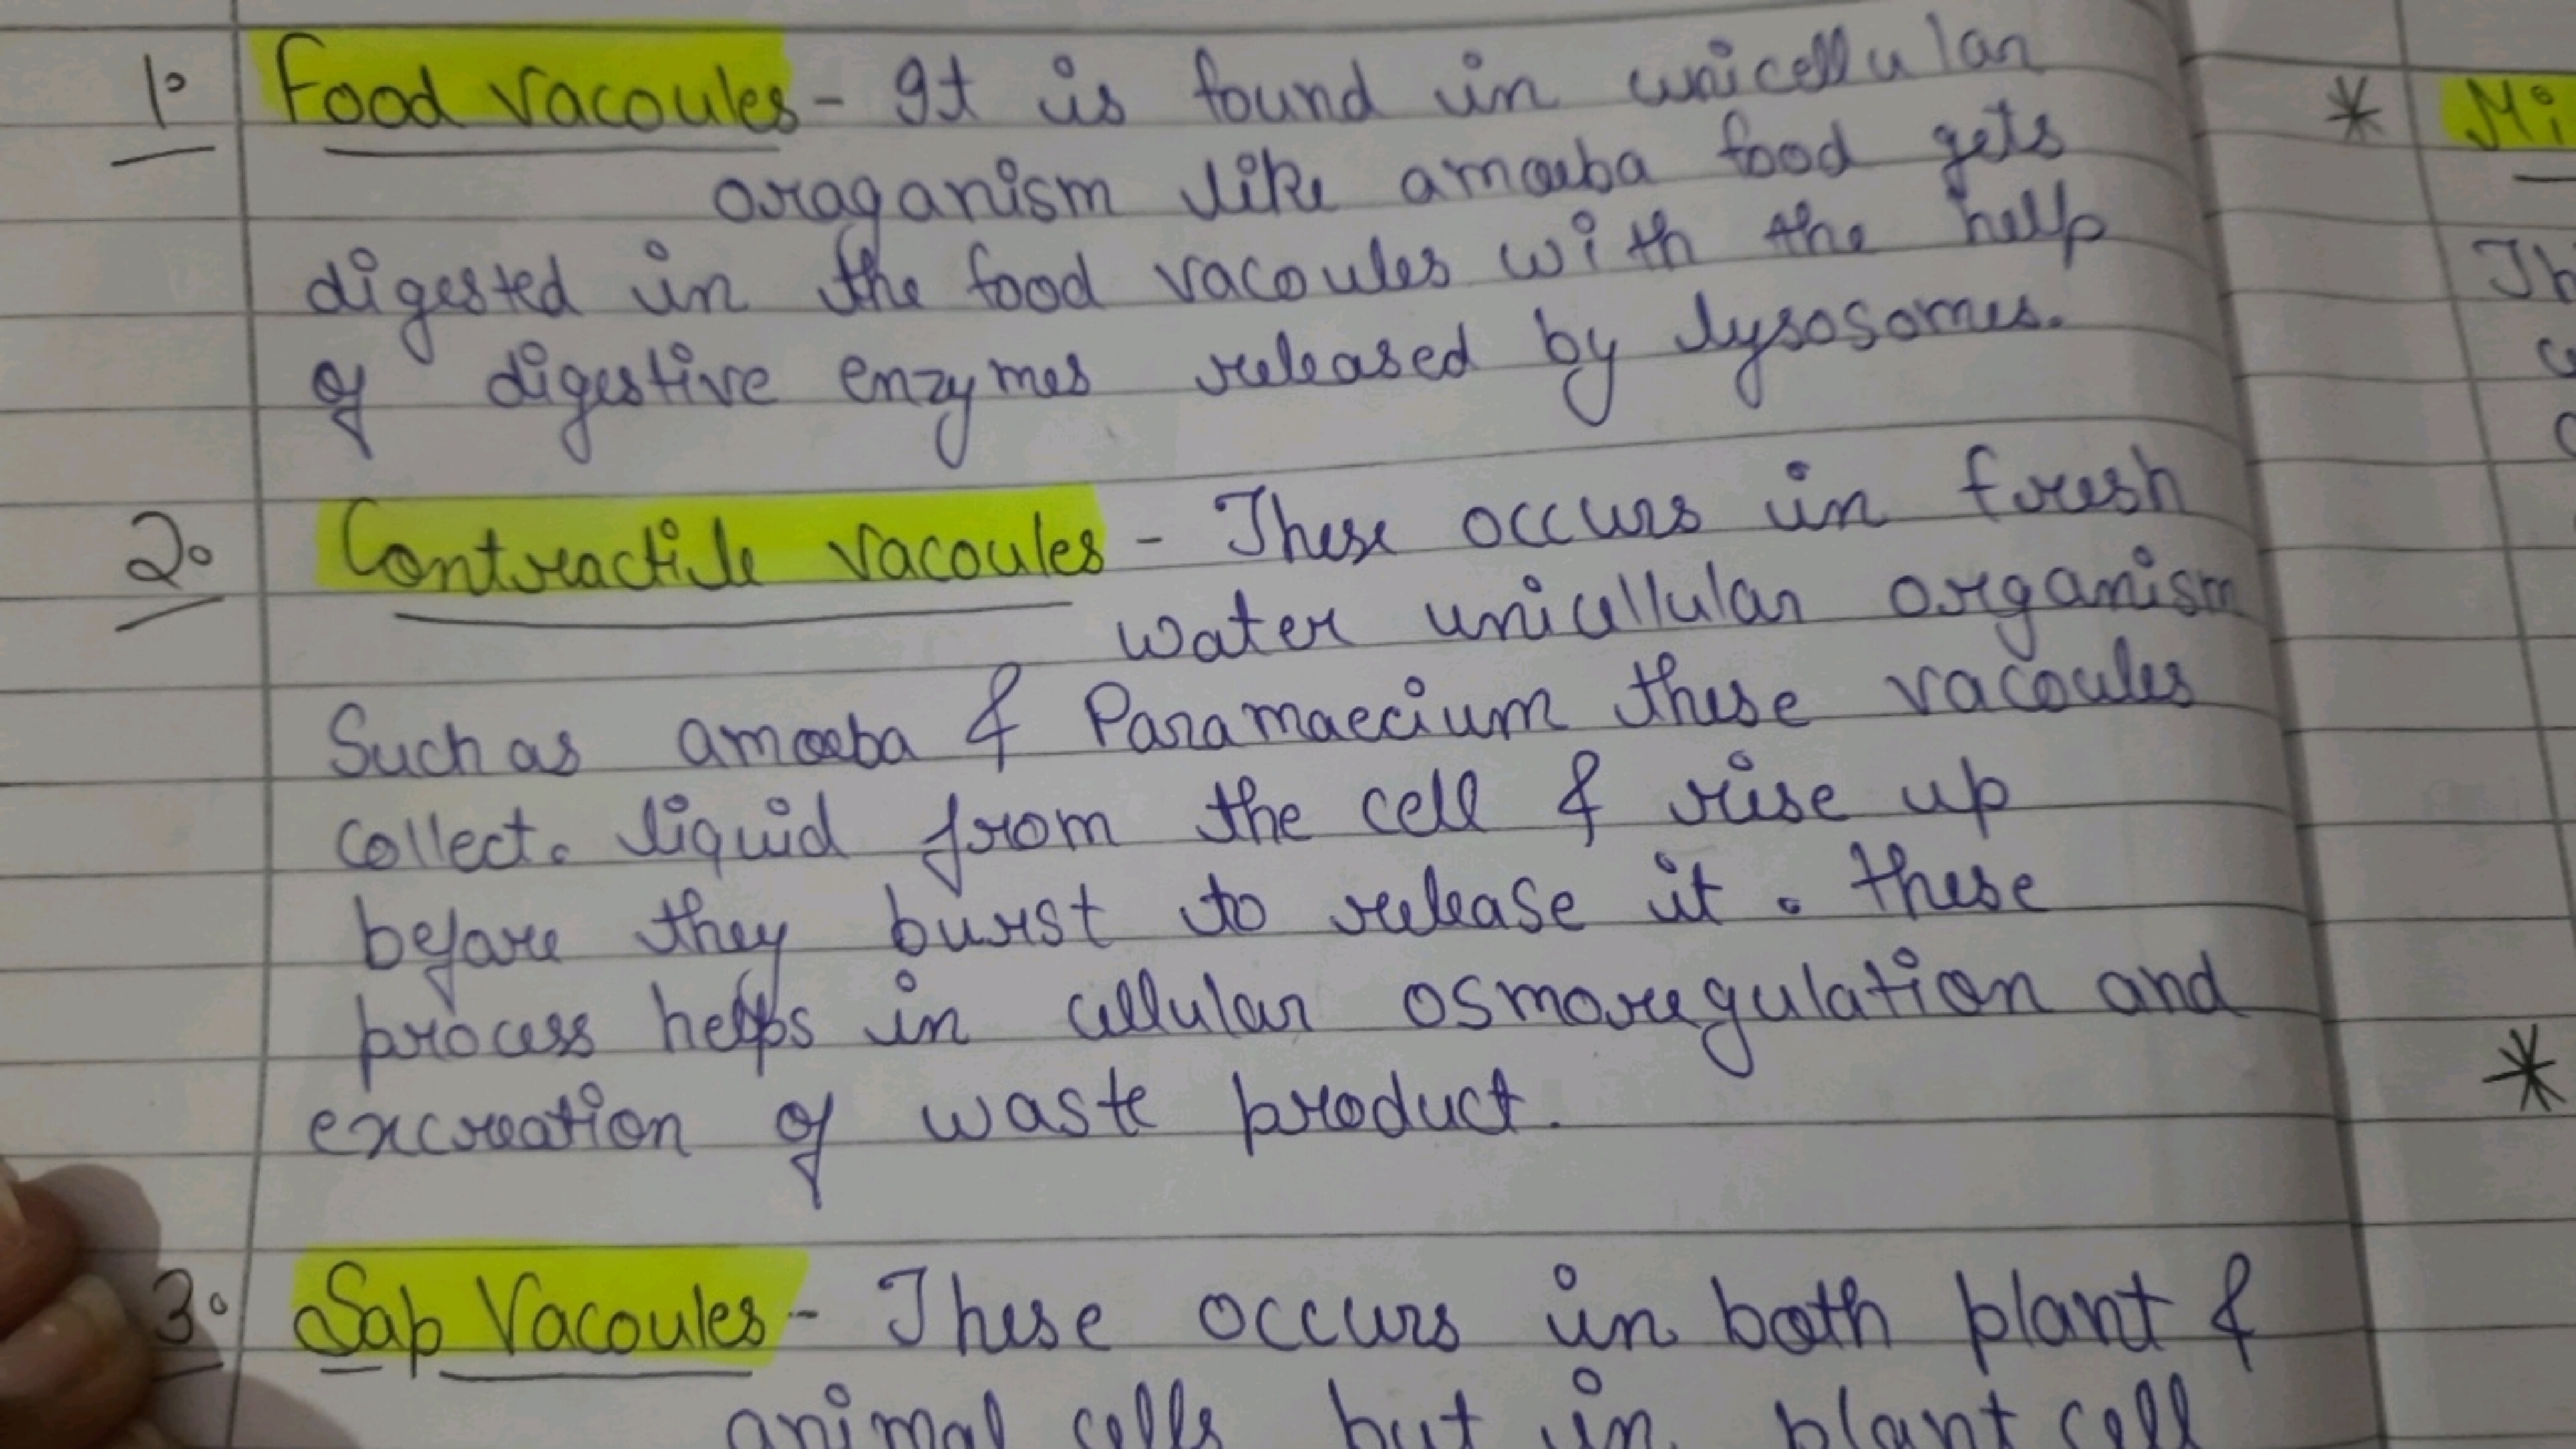 1. Food Vacoules - It is found in unicellular
oraganism like amoeba food gets
digested in the food vacoules with the help
of digestive enzymes released by lysosomes.
2. Contractile Vacoules - These occurs in fresh
water unicellular organism
Such as amoeba & Paramaecium these vacoules
collect. liquid from the cell & rise up
before they burst to release it. these
process helps in cellular osmoregulation and
excreation of waste product.
3. Sap Vacoules - These occurs in both plant &
animal cells but in plant cell
* Mi
Th
*